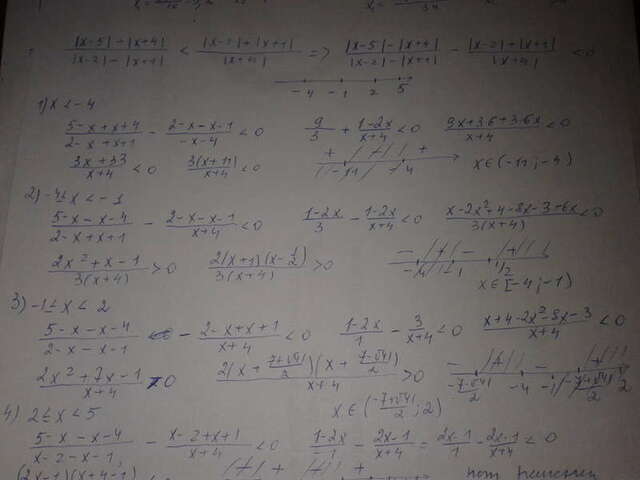 = |x-5|-|x+4| / |x-2|-|x+1| < |x-2|+|x+1| / |x+4| => |x-5|-|x+4| / |x-2|-|x+1| - |x-2|+|x+1| / |x+4| < 0
-4 -1 2 5
1) x < -4
5-x+x+4 / 2-x+x+1 - 2-x-x-1 / -x-4 < 0 9/3 + 1-2x / x+4 < 0 9x+36+3-6x / x+4 < 0
3x+33 / x+4 < 0 3(x+11) / x+4 < 0 + - + -11 -4 x∈(-11;-4)
2) -4≤x<-1
5-x-x-4 / 2-x+x+1 - 2-x-x-1 / x+4 < 0 1-2x / 3 - 1-2x / x+4 < 0 x-2x²+4-8x-3+6x / 3(x+4) < 0
2x²+x-1 / 3(x+4) > 0 2(x+1)(x-1/2) / 3(x+4) > 0 - + - + -4 -1 1/2
x∈[-4;-1)
3) -1≤x<2
5-x-x-4 / 2-x-x-1 - 2-x+x+1 / x+4 < 0 1-2x / 1 - 3 / x+4 < 0 x+4-2x²-8x-3 / x+4 < 0
2x²+7x-1 / x+4 > 0 2(x+ 7+√41 / 2)(x+ 7-√41 / 2) / x+4 > 0 - + - + -7-√41 / 2 -4 -1 -7+√41 / 2 2
x∈(-7+√41 / 2 ; 2)
4) 2≤x<5
5-x-x-4 / x-2-x-1 - x-2+x+1 / x+4 < 0 1-2x / -1 - 2x-1 / x+4 = 2x-1 / 1 - 2x-1 / x+4 < 0
(2x-1)(x+4-1) - + - + нет решений